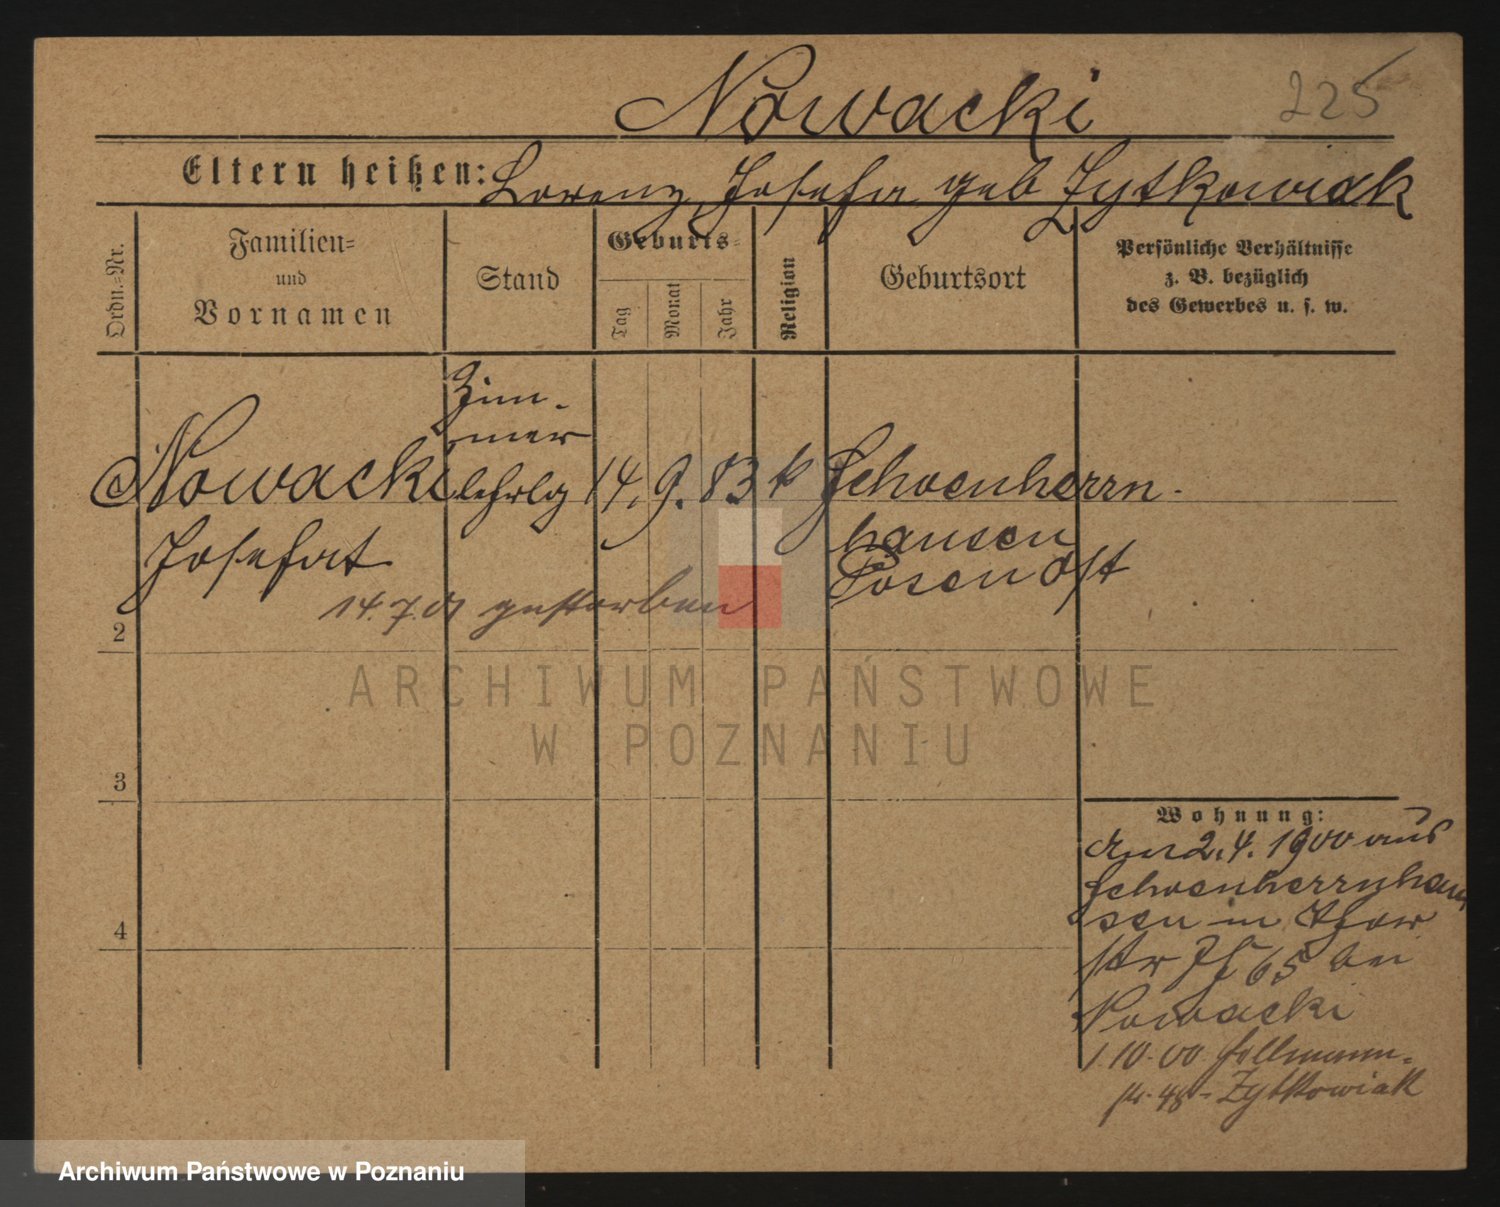 Nowacki
225
Eltern heißen: Lorenz, Josefa geb Zytkowiak
Ordn.=Nr.
Familien=
und
Vornamen
Stand
Geburts=
Tag
Monat
Jahr
Religion
Geburtsort
Persönliche Verhältnisse
z. B. bezüglich
des Gewerbes u. s. w.
Zim-
mer
Nowacki lehrlg 14. 9. 83 k Schoenherrn-
hausen
Josefat Posen Ost
14.7.01 gestorben
2
ARCHIWUM PAŃSTWOWE
W POZNANIU
3
Wohnung:
Am 2.4.1900 aus
Schoenherrnhau
sen in
str 65 bei
Nowacki
1.10.00
str. 48 - Zytkowiak
4
Archiwum Państwowe w Poznaniu